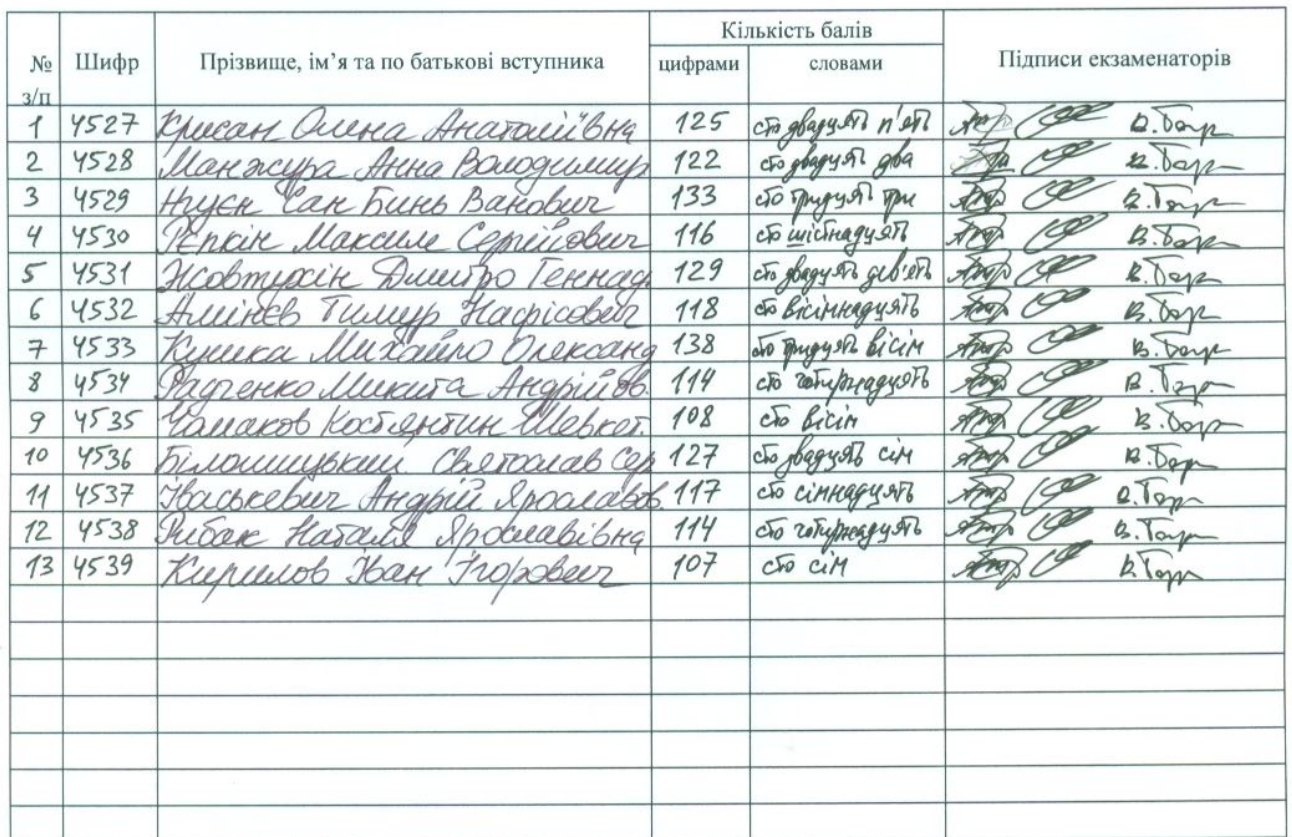 Кількість балів
№ Шифр Прізвище, ім’я та по батькові вступника цифрами словами Підписи екзаменаторів
з/п
1 4527 Крисан Олена Анатоліївна 125 сто двадцять п'ять
2 4528 Манжура Анна Володимир 122 сто двадцять два
3 4529 Нгуєн Сан Бинь Ванович 133 сто тридцять три
4 4530 Рєпкін Максим Сергійович 116 сто шістнадцять
5 4531 Жовтухін Дмитро Геннад 129 сто двадцять дев'ять
6 4532 Амінєв Тимур Нафісович 118 сто вісімнадцять
7 4533 Михайло Олександ 138 сто тридцять вісім
8 4534 Радченко Микита Андрійов. 114 сто чотирнадцять
9 4535 Чамаков Костянтин Шевкет. 108 сто вісім
10 4536 Білошицький Святослав Сер 127 сто двадцять сім
11 4537 Іваськевич Андрій Ярославов. 117 сто сімнадцять
12 4538 Рибак Наталя Ярославівна 114 сто чотирнадцять
13 4539 Кирилов Іван Ігорович 107 сто сім